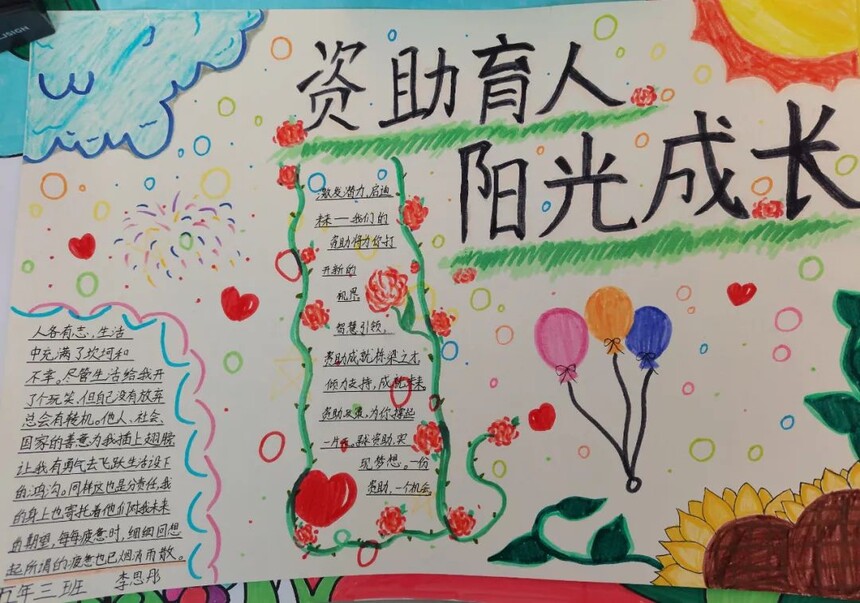 资助育人
阳光成长
激发潜力,启迪
未来一我们的
资助将为你打
开新的
视界
智慧引领,
资助成就栋梁之才
倾力支持,成就未来
为你撑起
现梦想。一份
资助,一个机会
人各有志,生活
中充满了坎坷和
不幸,尽管生活给我开
了个玩笑,但自己没有放弃
总会有转机。他人、社会、
国家的善意为我插上翅膀
让我有勇气去飞跃生活设下
的鸿沟。同样这也是分责任,我
的身上也寄托着他们对我未来
的期望,每每疲惫时,细细回想
起所谓的疲惫也已烟消而散。
五年三班 李思彤